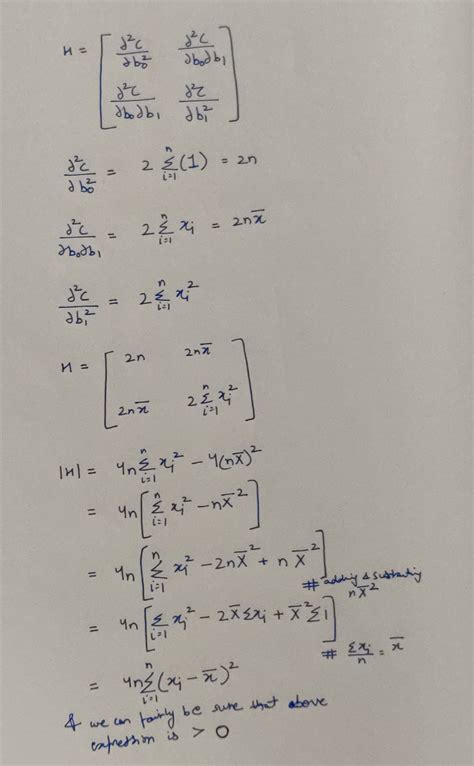 H = [ ∂²C/∂b₀²   ∂²C/∂b₀∂b₁
∂²C/∂b₀∂b₁   ∂²C/∂b₁² ]
∂²C/∂b₀² = 2 Σᵢ₌₁ⁿ (1) = 2n
∂²C/∂b₀∂b₁ = 2 Σᵢ₌₁ⁿ xᵢ = 2n x̄
∂²C/∂b₁² = 2 Σᵢ₌₁ⁿ xᵢ²
H = [ 2n   2n x̄
2n x̄   2 Σᵢ₌₁ⁿ xᵢ² ]
|H| = 4n Σᵢ₌₁ⁿ xᵢ² − 4(n x̄)²
= 4n [ Σᵢ₌₁ⁿ xᵢ² − n x̄² ]
= 4n [ Σᵢ₌₁ⁿ xᵢ² − 2n x̄² + n x̄² ]
# adding & substracting
n x̄²
= 4n [ Σᵢ₌₁ⁿ xᵢ² − 2 x̄ Σxᵢ + x̄² Σ1 ]
# Σxᵢ/n = x̄
= 4n Σᵢ₌₁ⁿ (xᵢ − x̄)²
& we can fairly be sure that above
expression is > 0